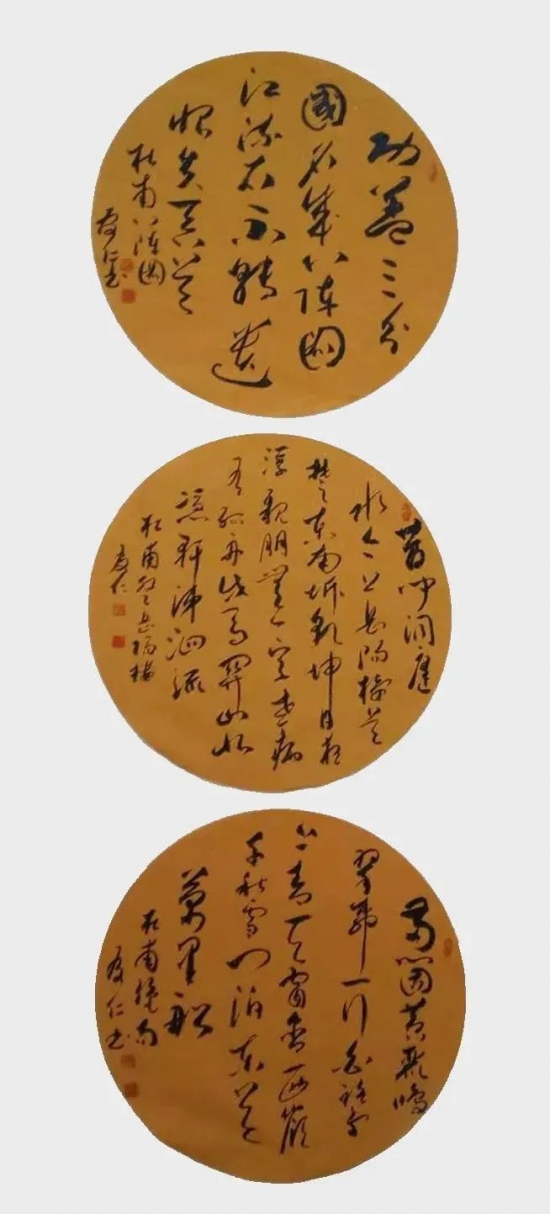 功蓋三分
國名成八陣圖
江流石不轉遺
恨失吞吳
杜甫八陣圖
昔聞洞庭
水今上岳陽樓吳
楚東南坼乾坤日夜
浮親朋無一字老病
有孤舟戎馬關山北
憑軒涕泗流
杜甫登岳陽樓
兩個黃鸝鳴
翠柳一行白鷺
上青天窗含西嶺
千秋雪門泊東吳
萬里船
杜甫絕句